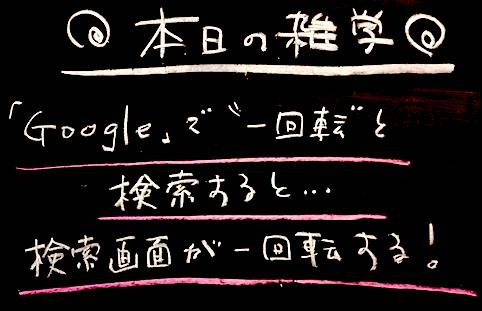 本日の雑学
「Google」で"一回転"と
検索すると…
検索画面が一回転する!